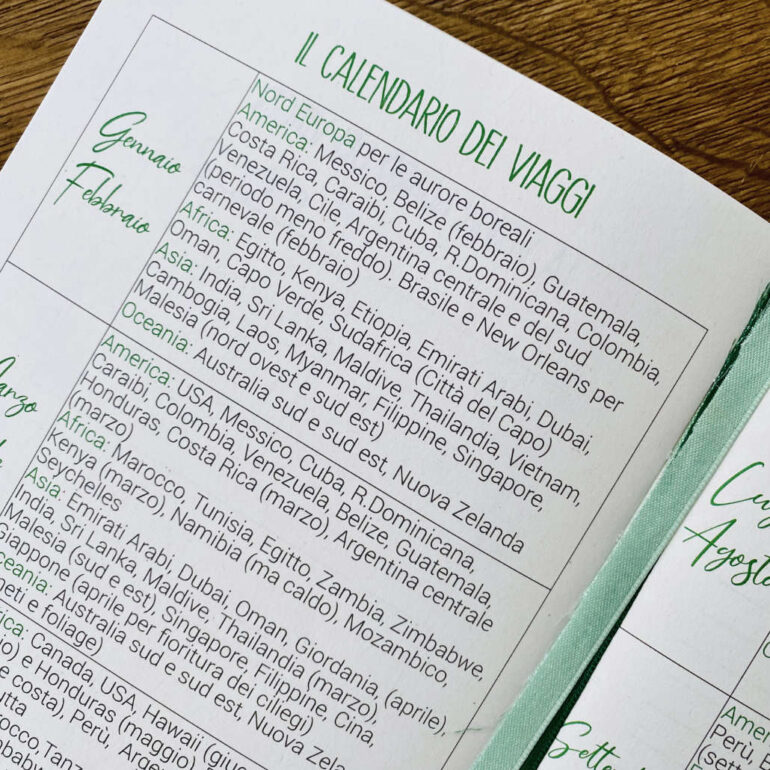 IL CALENDARIO DEI VIAGGI
Gennaio
Febbraio
Nord Europa per le aurore boreali
America: Messico, Belize (febbraio), Guatemala,
Costa Rica, Caraibi, Cuba, R.Dominicana, Colombia,
Venezuela, Cile, Argentina centrale e del sud
(periodo meno freddo). Brasile e New Orleans per
carnevale (febbraio)
Africa: Egitto, Kenya, Etiopia, Emirati Arabi, Dubai,
Oman, Capo Verde, Sudafrica (Città del Capo)
Asia: India, Sri Lanka, Maldive, Thailandia, Vietnam,
Cambogia, Laos, Myanmar, Filippine, Singapore,
Malesia (nord ovest e sud est)
Oceania: Australia sud e sud est, Nuova Zelanda
America: USA, Messico, Cuba, R.Dominicana,
Caraibi, Colombia, Venezuela, Belize, Guatemala,
Honduras, Costa Rica (marzo), Argentina centrale
(marzo)
Africa: Marocco, Tunisia, Egitto, Zambia, Zimbabwe,
Kenya (marzo), Namibia (ma caldo), Mozambico,
Seychelles
Asia: Emirati Arabi, Dubai, Oman, Giordania, (aprile),
India, Sri Lanka, Maldive, Thailandia (marzo),
Malesia (sud e est), Singapore, Filippine, Cina,
Giappone (aprile per fioritura dei ciliegi)
Oceania: Australia sud e sud est, Nuova Zela
e foliage)
Canada, USA, Hawaii (giu
e Honduras (maggio), Beli
costa), Perù, Arge
Agosto
Sette
Ame
Perù,
(sett